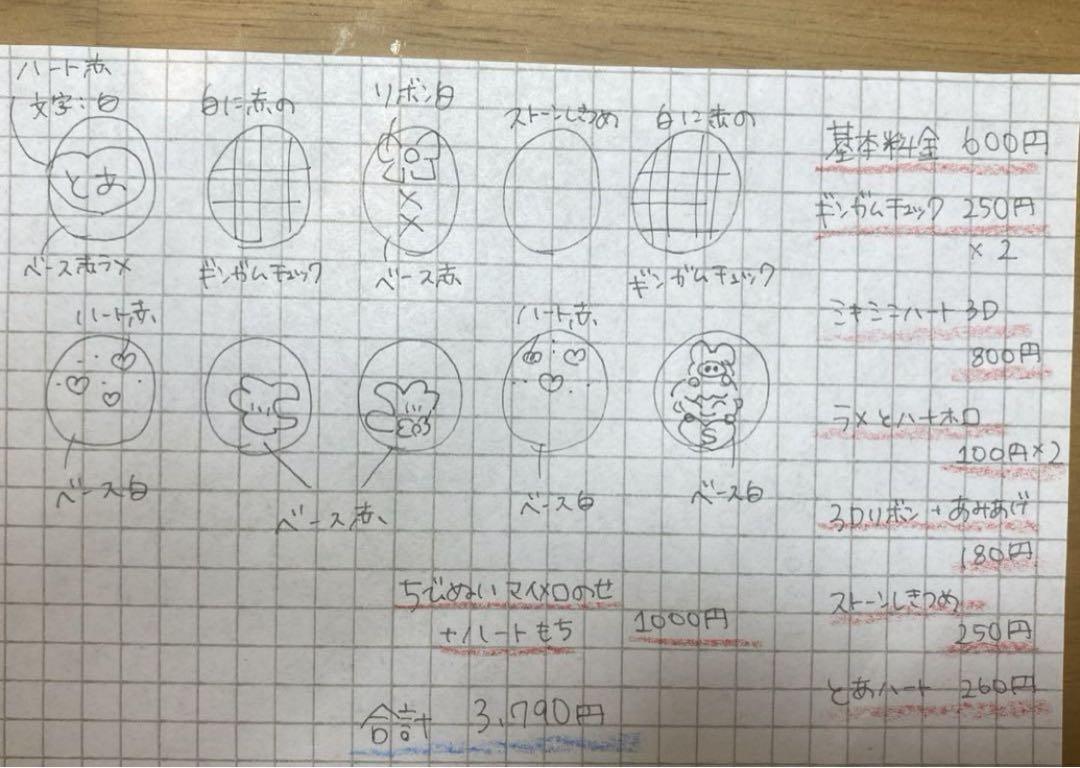 ハート赤
文字:白
とあ
ベース赤ラメ
白に赤の
ギンガムチェック
リボン白
ベース赤
ストーンしきつめ
白に赤の
ギンガムチェック
ハート赤
ベース白
ベース赤
ハート赤
ベース白
S
ベース白
基本料金 600円
ギンガムチェック 250円
×2
ミキミニハート3D
800円
ラメとハートホロ
100円×2
3Dリボン+あみあげ
180円
ストーンしきつめ
250円
とあハート 260円
ちびぬいマイメロのせ
+ハートもち 1000円
合計 3,790円